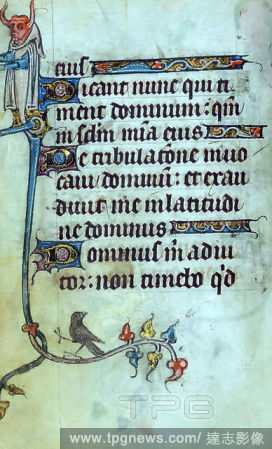 eius
Dicant nunc qui ti
ment dominum: qm̄
in sclm̄ mīa eius
De tribulacōne inuo
caui dominū: et exau
diuit me in latitudi
ne dominus
Dominus m̄ adiu
tor: non timebo q̄d
TPG
www.tpgnews.com/達志影像